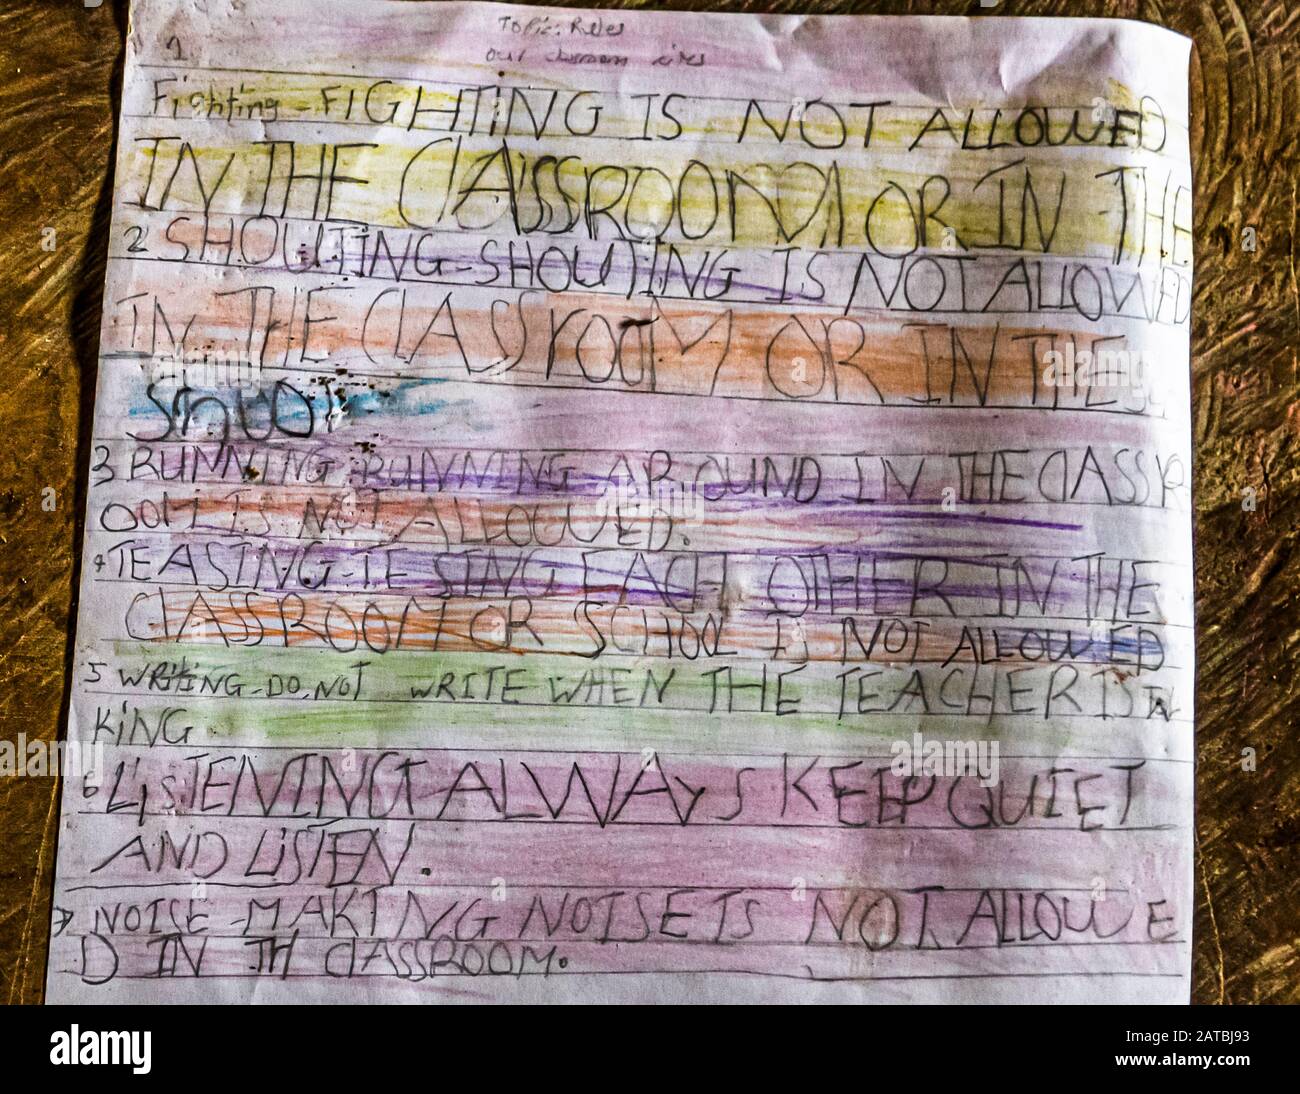 Topic: Rules
our classroom rules
1
Fighting - FIGHTING IS NOT ALLOWED
IN THE ClASSROOM OR IN THE
2 SHOUTING - SHOUTING IS NOT ALLOWED
IN THE CLASSROOM OR IN THE
3 RUNNING - RUNNING AROUND IN THE CLASSR
OOM IS NOT ALLOWED.
4 TEASING - TESING EACH OTHER IN THE
CLASSROOM OR SCHOOL IS NOT ALLOWED
5 WRiTiNG - DO NOT WRITE WHEN THE TEACHER IS TAL
KiNG.
6 LiSTENING - ALWAYS KEEP QUIET
AND LiSTEN.
7 NOISE - MAKING NOISE IS NOT ALLOWE
D IN TH CLASSROOM.
alamy
Image ID: 2ATBJ93
www.alamy.com